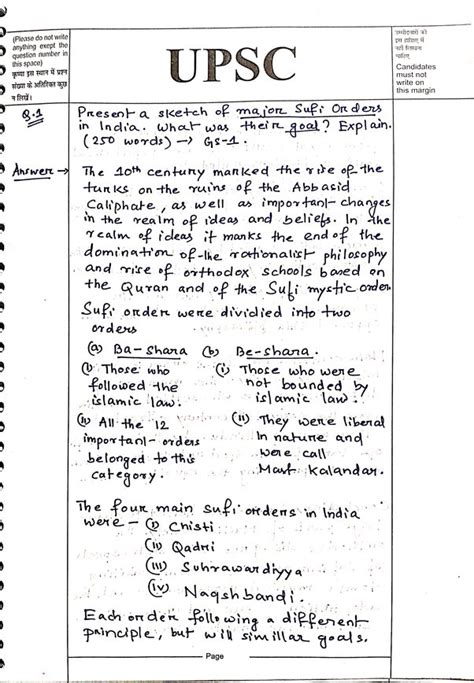 (Please do not write
anything exept the
question number in
this space)
कृपया इस स्थान में प्रश्न
संख्या के अतिरिक्त कुछ
न लिखें।
UPSC
उम्मीदवारों को
इस हाशिए में
नहीं लिखना
चाहिए
Candidates
must not
write on
this margin
Q.1
Present a sketch of major Sufi Orders
in India. What was their goal? Explain.
(250 words) → GS-1.
Answer →
The 10th century marked the rise of the
turks on the ruins of the Abbasid
Caliphate, as well as important changes
in the realm of ideas and beliefs. In the
realm of ideas it marks the end of the
domination of the rationalist philosophy
and rise of orthodox schools based on
the Quran and of the Sufi mystic order
Sufi order were dividied into two
orders
(a) Ba-shara (b) Be-shara.
(i) Those who
followed the
islamic law.
(ii) All the 12
important orders
belonged to this
category.
(i) Those who were
not bounded by
islamic law.
(ii) They were liberal
In nature and
were call
Mast Kalandar.
The four main sufi orders in India
were – (i) Chisti
(ii) Qadri
(iii) Suhrawardiyya
(iv) Naqshbandi.
Each order following a different
principle, but will simillar goals.
Page